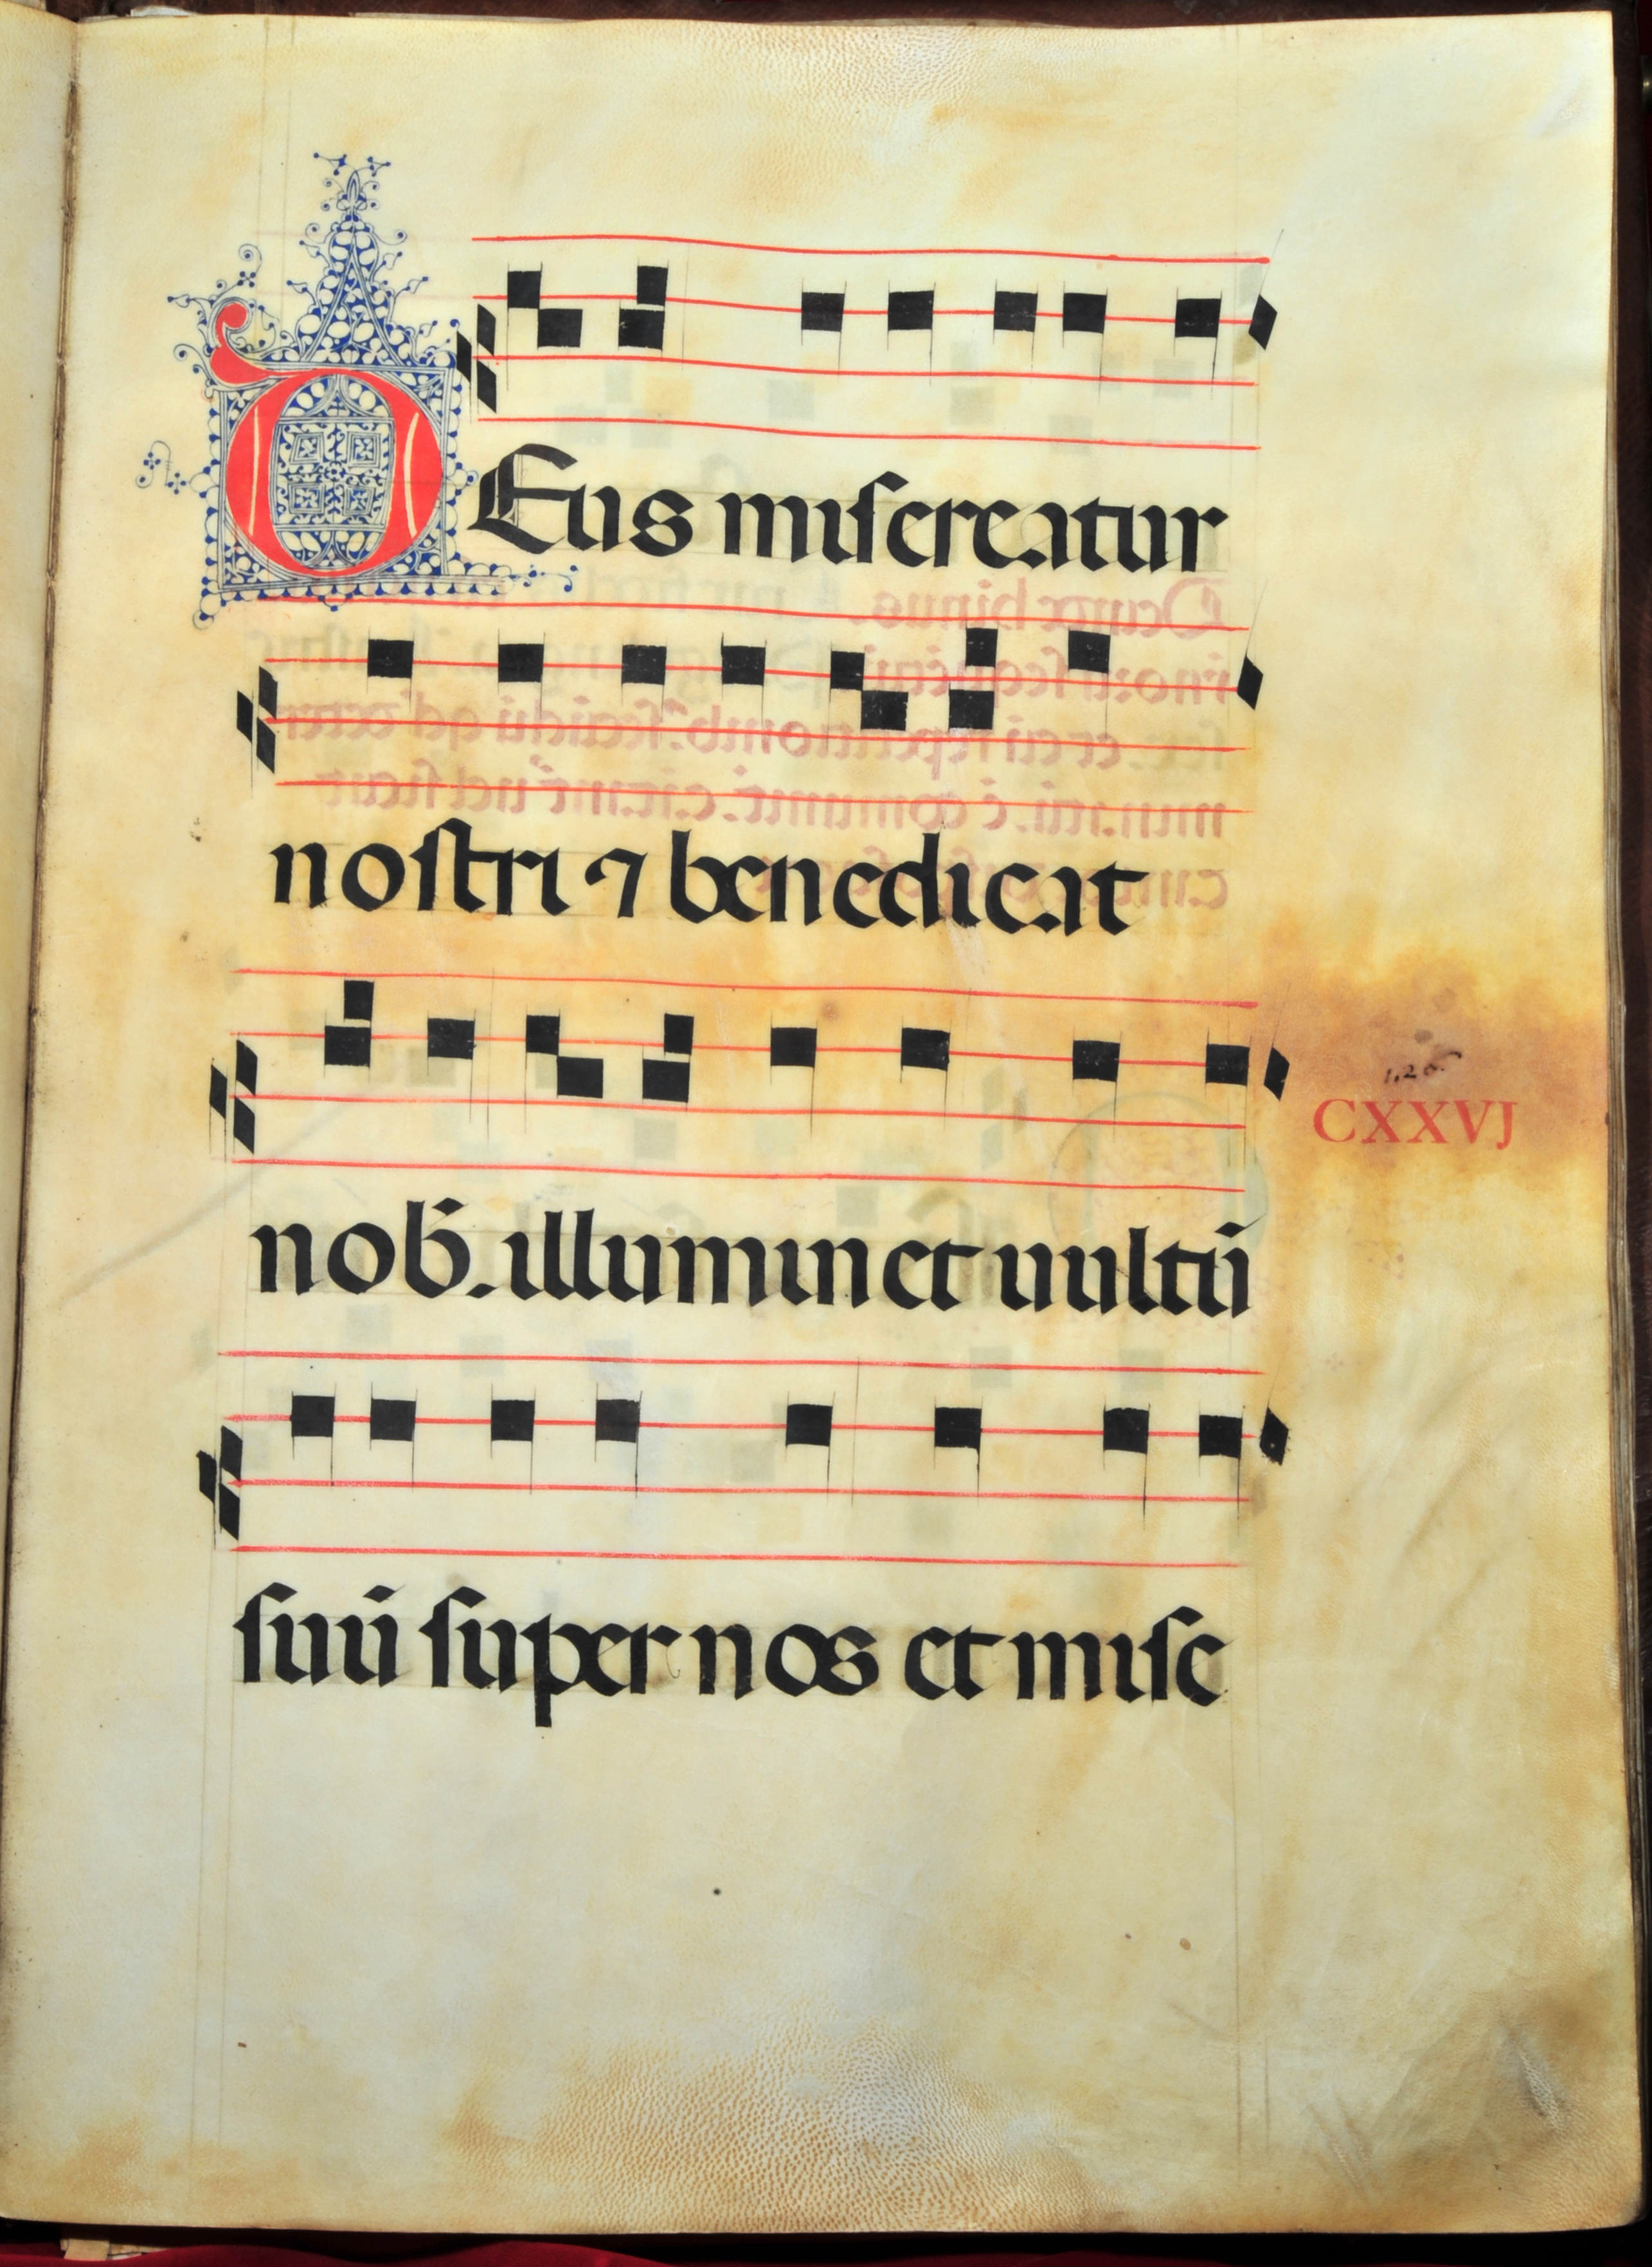 DEus misereatur
nostri ⁊ benedicat
nob̄. illuminet uultū
126
CXXVJ
suū super nos et mise